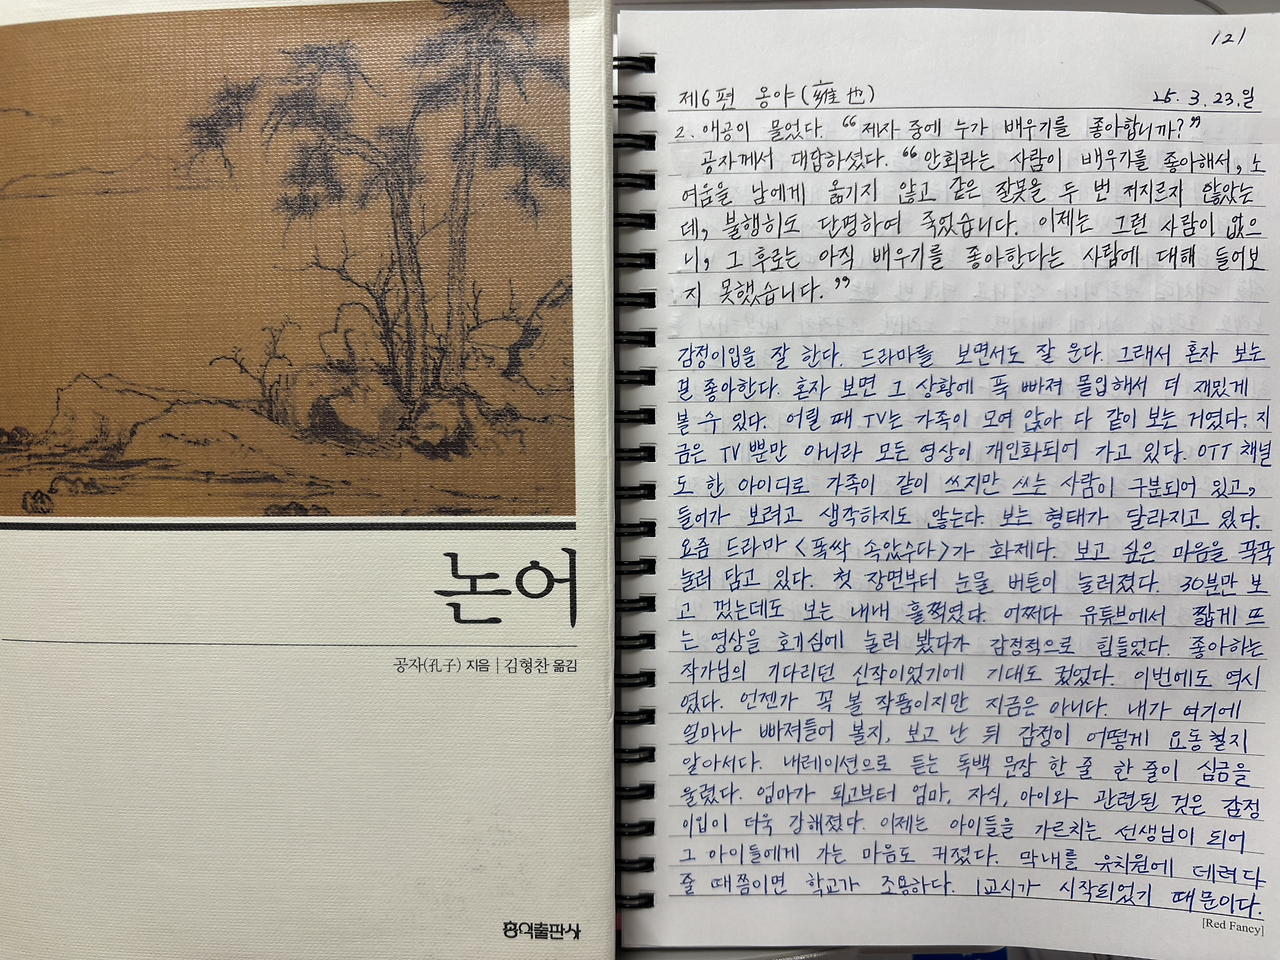 논어
공자(孔子) 지음 | 김형찬 옮김
홍익출판사
121
제6편 옹야(雍也) 25. 3. 23. 일
2. 애공이 물었다. "제자 중에 누가 배우기를 좋아합니까?"
공자께서 대답하셨다. "안회라는 사람이 배우기를 좋아해서, 노
여움을 남에게 옮기지 않고 같은 잘못을 두 번 저지르지 않았는
데, 불행히도 단명하여 죽었습니다. 이제는 그런 사람이 없으
니, 그 후로는 아직 배우기를 좋아한다는 사람에 대해 들어보
지 못했습니다."
감정이입을 잘 한다. 드라마를 보면서도 잘 운다. 그래서 혼자 보는
걸 좋아한다. 혼자 보면 그 상황에 푹 빠져 몰입해서 더 재밌게
볼 수 있다. 어릴 때 TV는 가족이 모여 앉아 다 같이 보는 거였다. 지
금은 TV 뿐만 아니라 모든 영상이 개인화되어 가고 있다. OTT 채널
도 한 아이디로 가족이 같이 쓰지만 쓰는 사람이 구분되어 있고,
들어가 보려고 생각하지도 않는다. 보는 형태가 달라지고 있다.
요즘 드라마 <폭싹 속았수다>가 화제다. 보고 싶은 마음을 꾹꾹
눌러 담고 있다. 첫 장면부터 눈물 버튼이 눌러졌다. 30분만 보
고 껐는데도 보는 내내 훌쩍였다. 어쩌다 유튜브에서 짧게 뜨
는 영상을 호기심에 눌러 봤다가 감정적으로 힘들었다. 좋아하는
작가님의 기다리던 신작이었기에 기대도 컸었다. 이번에도 역시
였다. 언젠가 꼭 볼 작품이지만 지금은 아니다. 내가 여기에
얼마나 빠져들어 볼지, 보고 난 뒤 감정이 어떻게 요동칠지
알아서다. 내레이션으로 듣는 독백 문장 한 줄 한 줄이 심금을
울렸다. 엄마가 되고부터 엄마, 자식, 아이와 관련된 것은 감정
이입이 더욱 강해졌다. 이제는 아이들을 가르치는 선생님이 되어
그 아이들에게 가는 마음도 커졌다. 막내를 유치원에 데려다
줄 때쯤이면 학교가 조용하다. 1교시가 시작되었기 때문이다.
[Red Fancy]